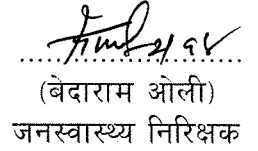 (बेदाराम ओली)
जनस्वास्थ्य निरिक्षक